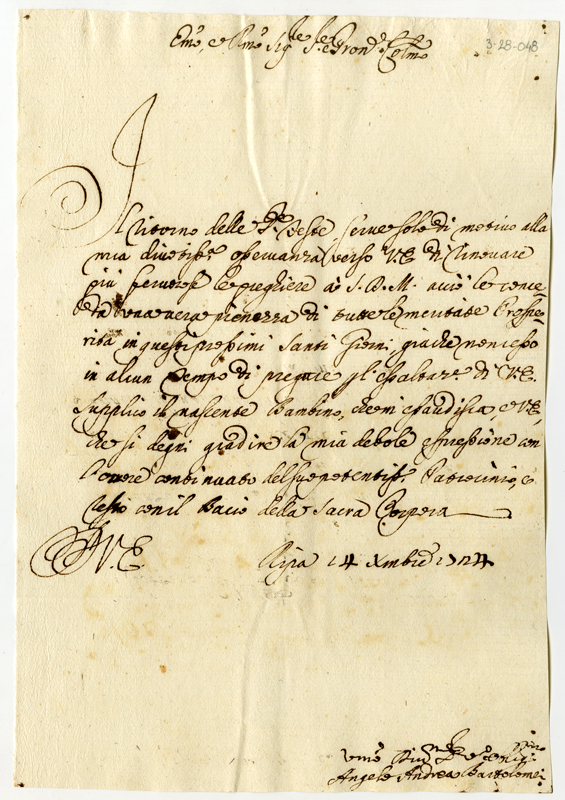 Emo, e Rmo Sigre Sre Pron Colmo
3-28-048
Il ritorno delle Ste Feste serve solo di motivo alla
mia divotissa osservanza verso V.E. di rinovare
più fervorose le preghiere a S.D.M. acciò le conce-
da una vera pienezza di tutte le meritate Prospe-
rità in questi prossimi Santi Giorni, giache non cesso
in alcun tempo di pregare gl'essaltare di V.E.
Supplico il nascente Bambino, che mi esaudisca e V.E.
che si degni gradire la mia debole espressione con
l'onore continuato del suo potentisso Patrocinio, e
resto con il Bacio della Sacra Porpora
D V.E. Ripa 14 Xmbre 1724
Umo Divmo
Angelo Andrea Bartolomei